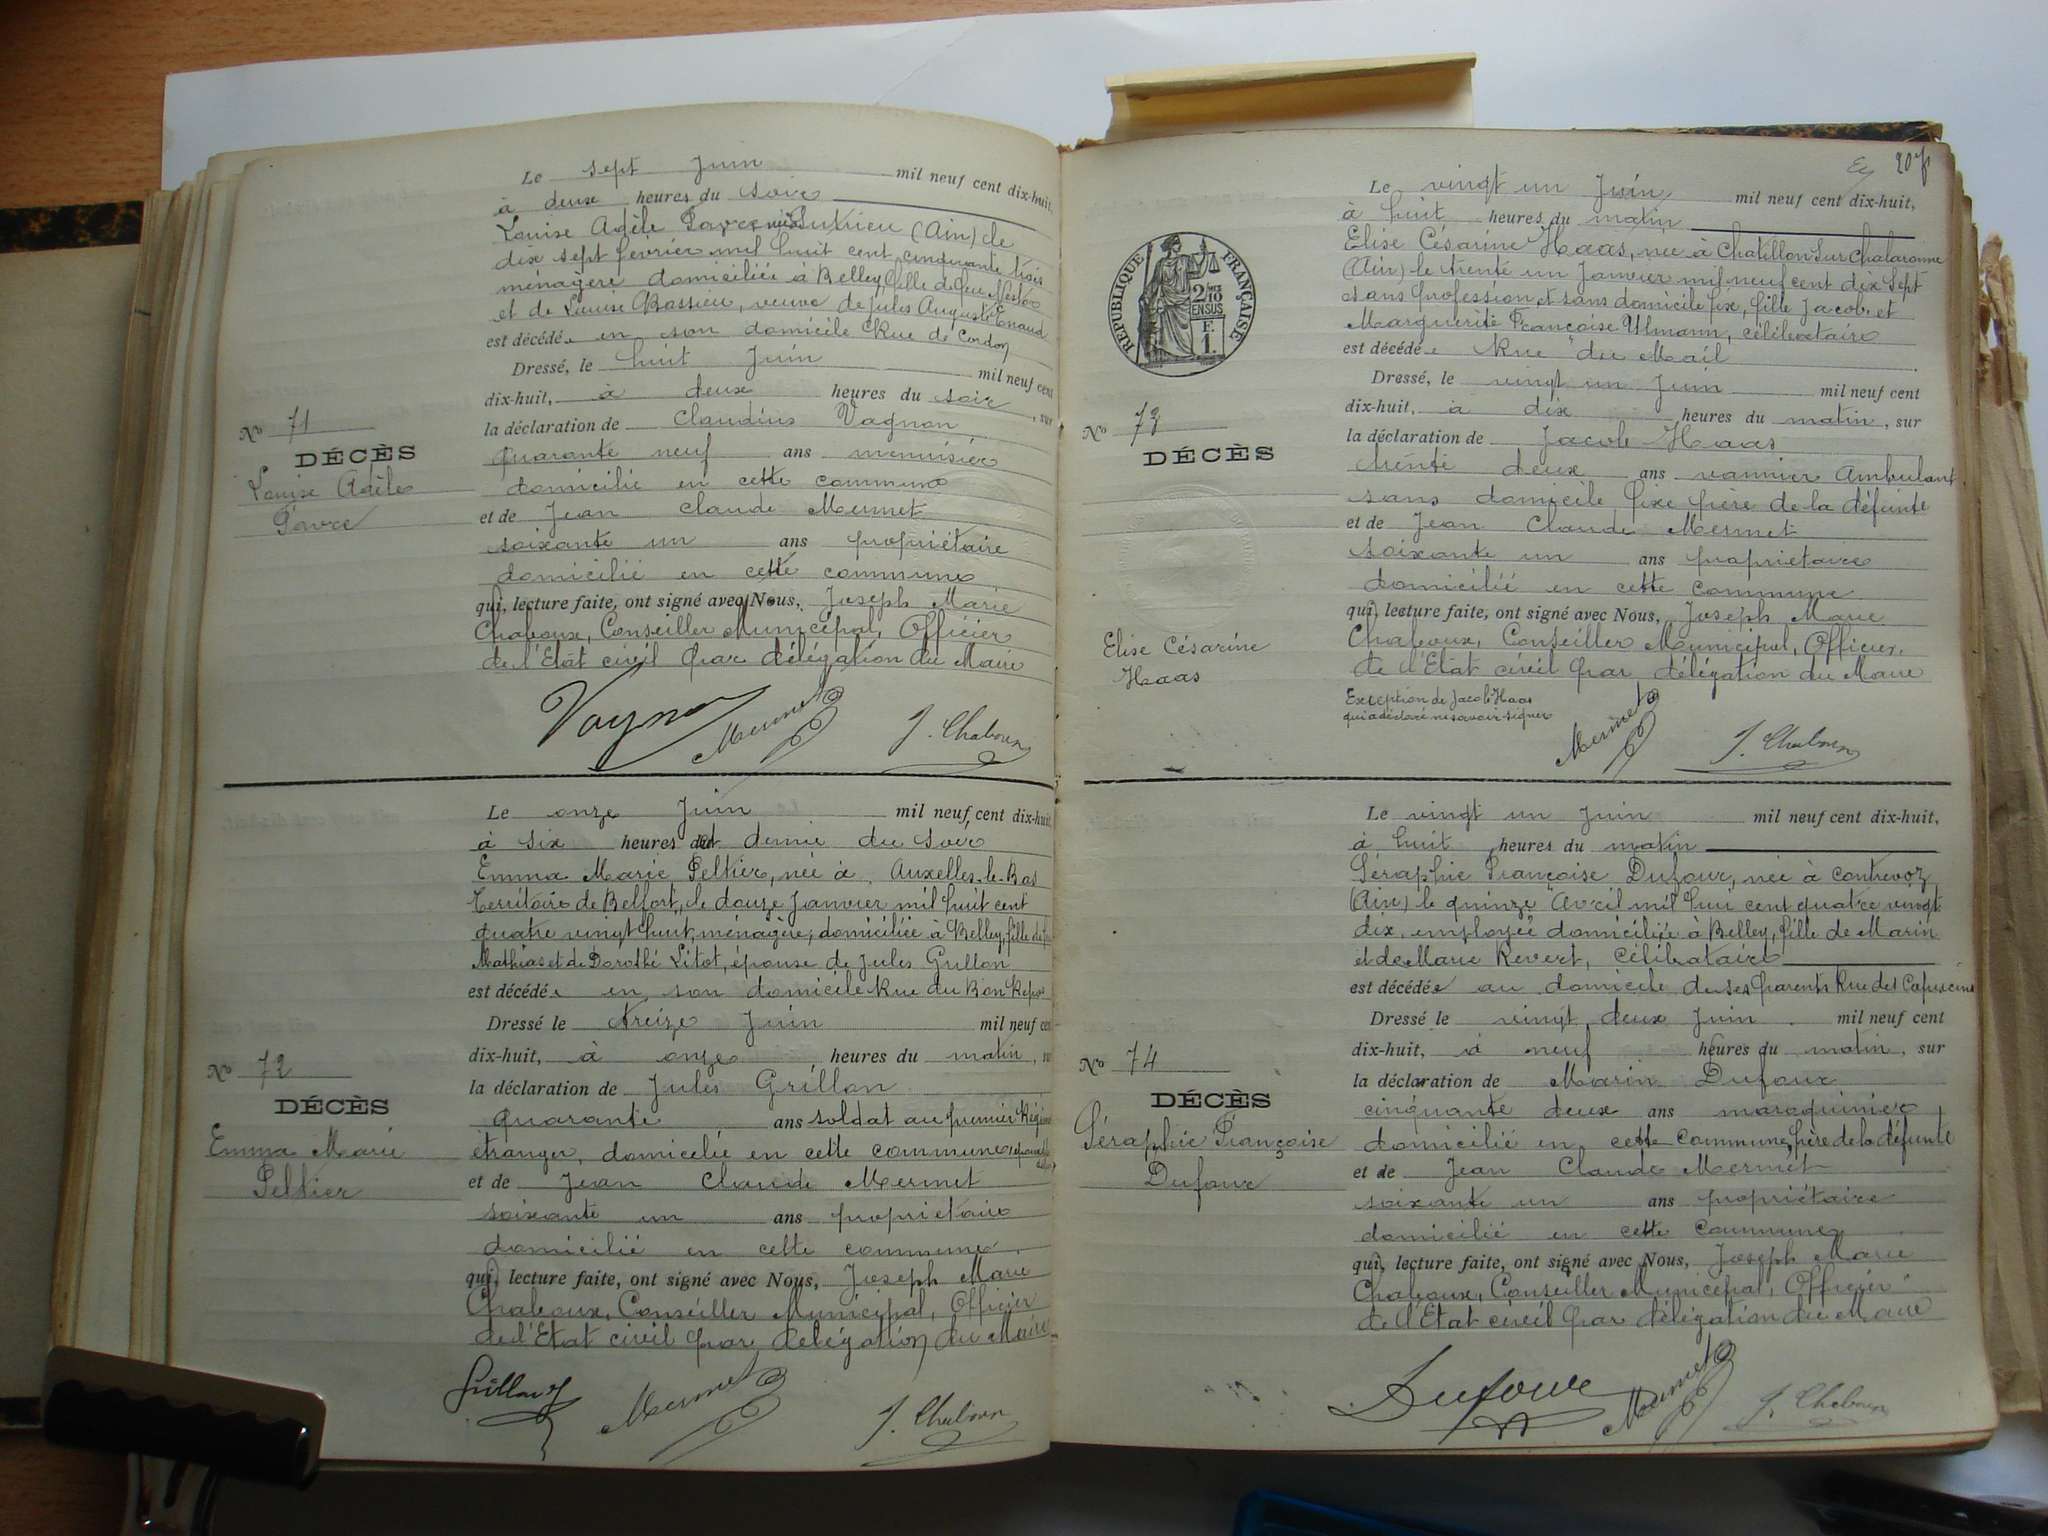 Le sept Juin mil neuf cent dix-huit,
à deux heures du soir
Louise Adèle Favre née Sutrieu (Ain) le
dix sept février mil huit cent cinquante trois
ménagère domiciliée à Belley, fille de feu Nestor
et de Louise Bassieu, veuve de Jules Auguste Enaud
est décédée en son domicile Rue de Cordon
Dressé, le huit Juin mil neuf cent
dix-huit, à deux heures du soir, sur
la déclaration de Claudius Vagnon
quarante neuf ans menuisier
domicilié en cette commune
et de Jean Claude Mermet
soixante un ans propriétaire
domicilié en cette commune
qui, lecture faite, ont signé avec Nous, Joseph Marie
Chaboux, Conseiller Municipal, Officier
de l'Etat civil par délégation du Maire
No 71
DÉCÈS
Louise Adèle
Favre
Vagnon Mermet J. Chaboux
Le onze Juin mil neuf cent dix-huit,
à six heures et demie du soir
Emma Marie Peltier, née à Auxelles-le-Bas
Territoire de Belfort, le douze Janvier mil huit cent
quatre vingt huit, ménagère, domiciliée à Belley, fille de feu
Mathias et de Dorothé Litot, épouse de Jules Grillon
est décédée en son domicile Rue du Bon Repos
Dressé le treize Juin mil neuf cen
dix-huit, à onze heures du matin, su
la déclaration de Jules Grillon
quarante ans soldat au premier Régim
étranger, domicilié en cette commune,
et de Jean Claude Mermet
soixante un ans propriétaire
domicilié en cette commune
qui, lecture faite, ont signé avec Nous, Joseph Marie
Chaboux, Conseiller Municipal, Officier
de l'Etat civil par délégation du Maire
No 72
DÉCÈS
Emma Marie
Peltier
Grillon Mermet J. Chaboux
207
Le vingt un Juin mil neuf cent dix-huit,
à huit heures du matin
Elise Césarine Haas, née à Chatillon Sur Chalaronne
(Ain) le trente un Janvier mil neuf cent dix Sept
sans profession et sans domicile fixe, fille Jacob et
Marguerite Françoise Ulmann, célibataire
est décédée Rue du Mail
Dressé, le vingt un Juin mil neuf cent
dix-huit, à dix heures du matin, sur
la déclaration de Jacob Haas
trente deux ans vannier Ambulant
sans domicile fixe père de la défunte
et de Jean Claude Mermet
soixante un ans propriétaire
domicilié en cette commune
qui, lecture faite, ont signé avec Nous, Joseph Marie
Chaboux, Conseiller Municipal, Officier
de l'Etat civil par délégation du Maire
Exception de Jacob Haas
qui a déclaré ne savoir signer
Mermet J. Chaboux
RÉPUBLIQUE FRANÇAISE
2/10
EN SUS
F.
1.
No 73
DÉCÈS
Elise Césarine
Haas
Le vingt un Juin mil neuf cent dix-huit,
à huit heures du matin
Séraphie Françoise Dufour, née à Contrevoz
(Ain) le quinze Avril mil huit cent quatre vingt
dix, employée domiciliée à Belley, fille de Marin
et de Marie Revert, célibataire
est décédée au domicile de ses parents Rue des Capucins
Dressé le vingt deux Juin mil neuf cent
dix-huit, à neuf heures du matin, sur
la déclaration de Marin Dufour
cinquante deux ans maroquinier
domicilié en cette commune, père de la défunte
et de Jean Claude Mermet
soixante un ans propriétaire
domicilié en cette Commune
qui, lecture faite, ont signé avec Nous, Joseph Marie
Chaboux, Conseiller Municipal, Officier
de l'Etat civil par délégation du Maire
No 74
DÉCÈS
Séraphie Françoise
Dufour
Dufour Mermet J. Chaboux